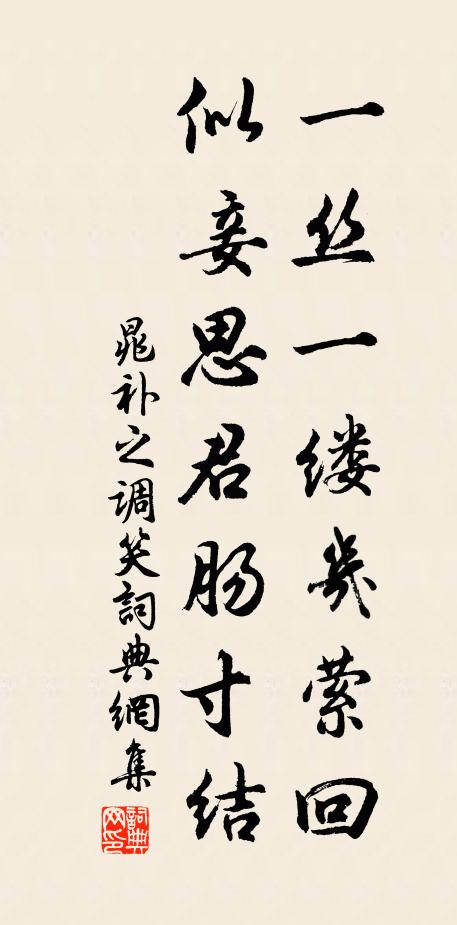 一丝一缕幾萦回
似妾思君肠寸结
晁补之调笑詞典網集
詞典网印